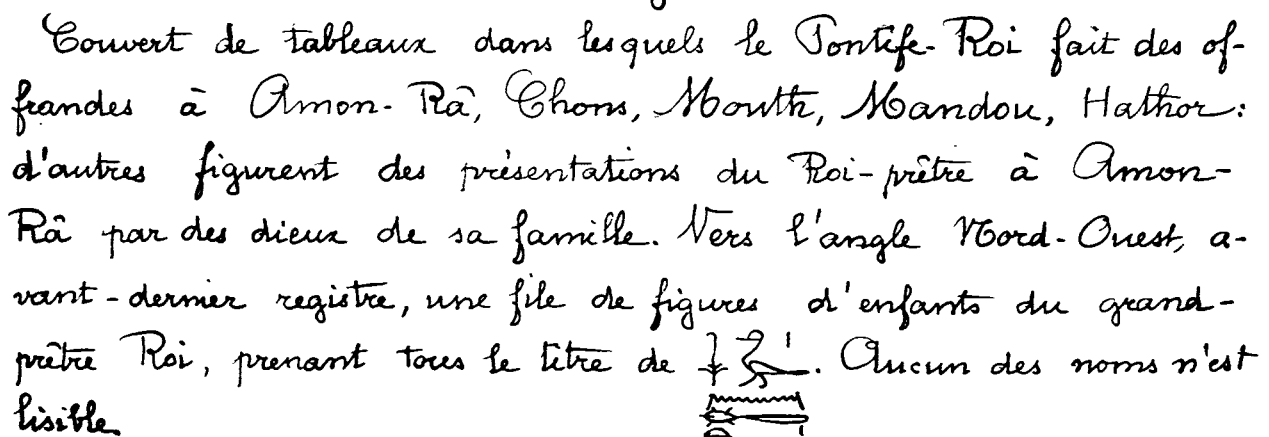 Couvert de tableaux dans lesquels le Pontife-Roi fait des of-
frandes à Amon-Râ, Chons, Mouth, Mandou, Hathor:
d'autres figurent des présentations du Roi-prêtre à Amon-
Râ par des dieux de sa famille. Vers l'angle Nord-Ouest, a-
vant-dernier registre, une file de figures d'enfants du grand-
prêtre Roi, prenant tous le titre de . Aucun des noms n'est
lisible